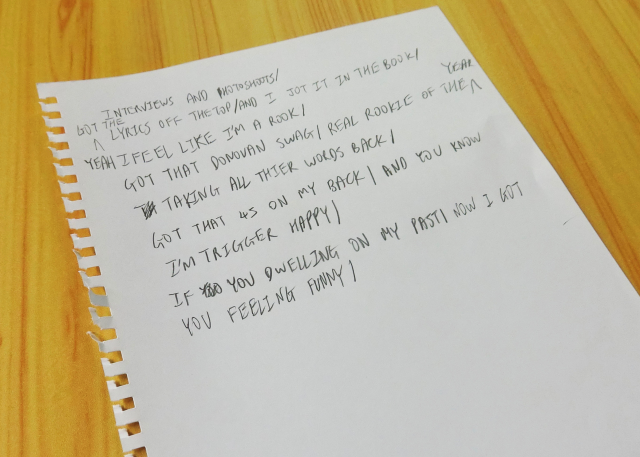 INTERVIEWS AND PHOTOSHOOTS/
GOT THE LYRICS OFF THE TOP/AND I JOT IT IN THE BOOK/
YEAH I FEEL LIKE I'M A ROOK/
GOT THAT DONOVAN SWAG/ REAL ROOKIE OF THE YEAR
TAKING ALL THIER WORDS BACK/
GOT THAT 45 ON MY BACK/ AND YOU KNOW
I'M TRIGGER HAPPY/
IF YOU DWELLING ON MY PAST/ NOW I GOT
YOU FEELING FUNNY/